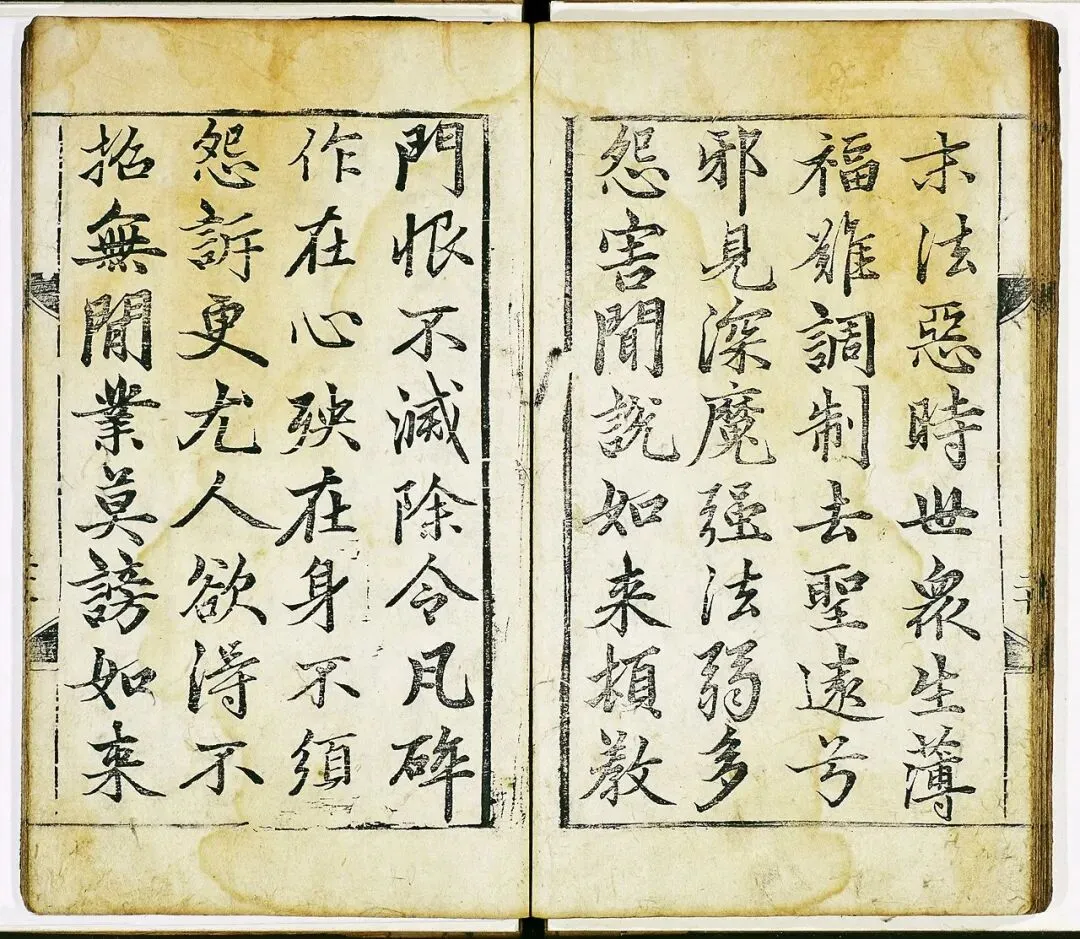 末法惡時世衆生薄
福難調制去聖遠兮
邪見深魔强法弱多
怨害聞說如来頓教
門恨不滅除令瓦碎
作在心殃在身不須
怨訴更尤人欲得不
招無閒業莫謗如来